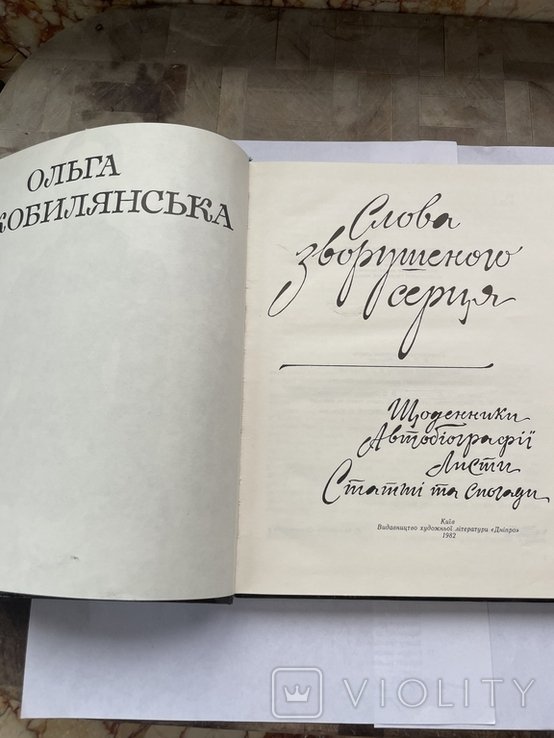 ОЛЬГА
КОБИЛЯНСЬКА
Слова
зворушеного
серця
Щоденники
Автобіографії
Листи
Статті та спогади
Київ
Видавництво художньої літератури «Дніпро»
1982
VIOLITY